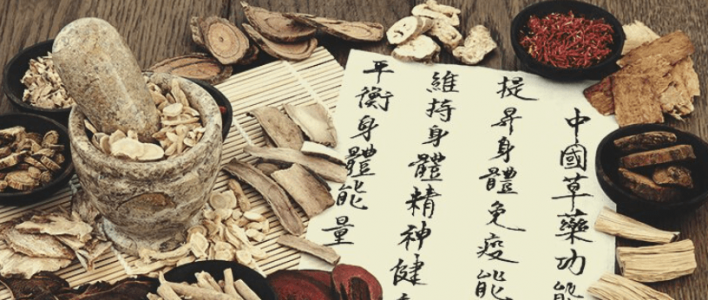 中國草藥功能
提昇身體免疫能
維持身體精神健
平衡身體能量